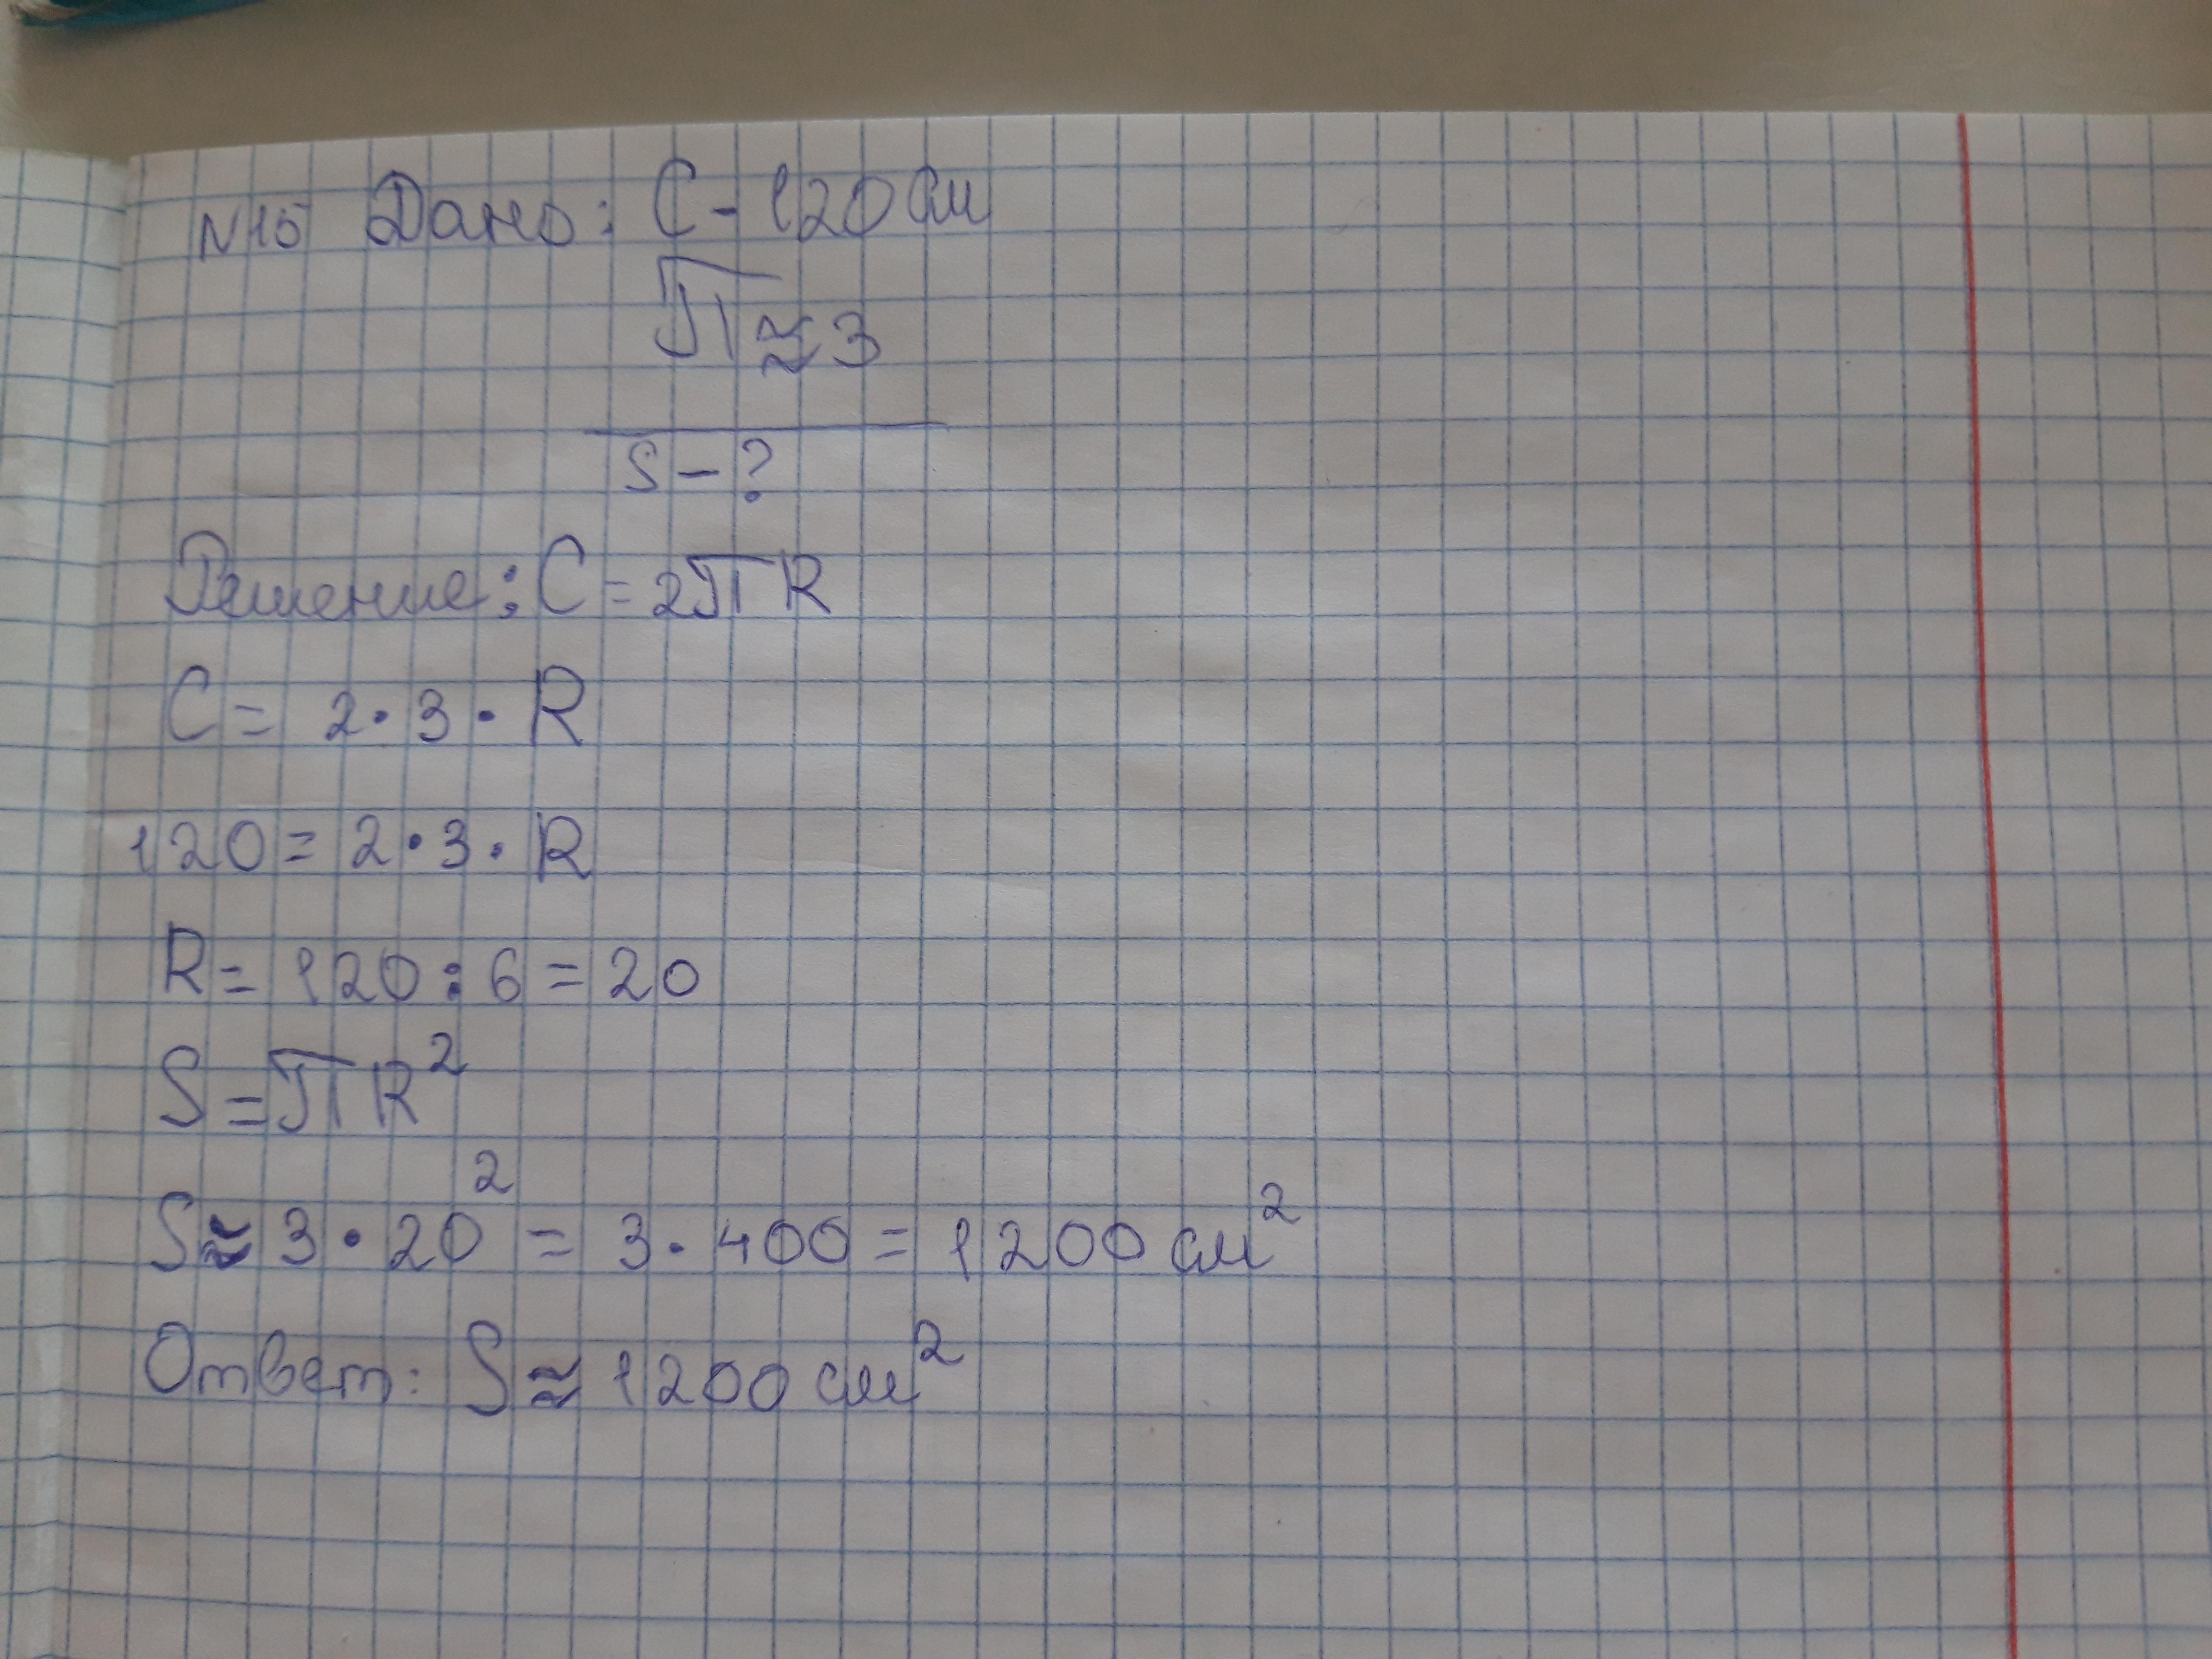 N15 Дано: C - 120 см
π ≈ 3
S - ?
Решение: C = 2πR
C = 2 · 3 · R
120 = 2 · 3 · R
R = 120 : 6 = 20
S = πR²
S ≈ 3 · 20² = 3 · 400 = 1200 см²
Ответ: S ≈ 1200 см²